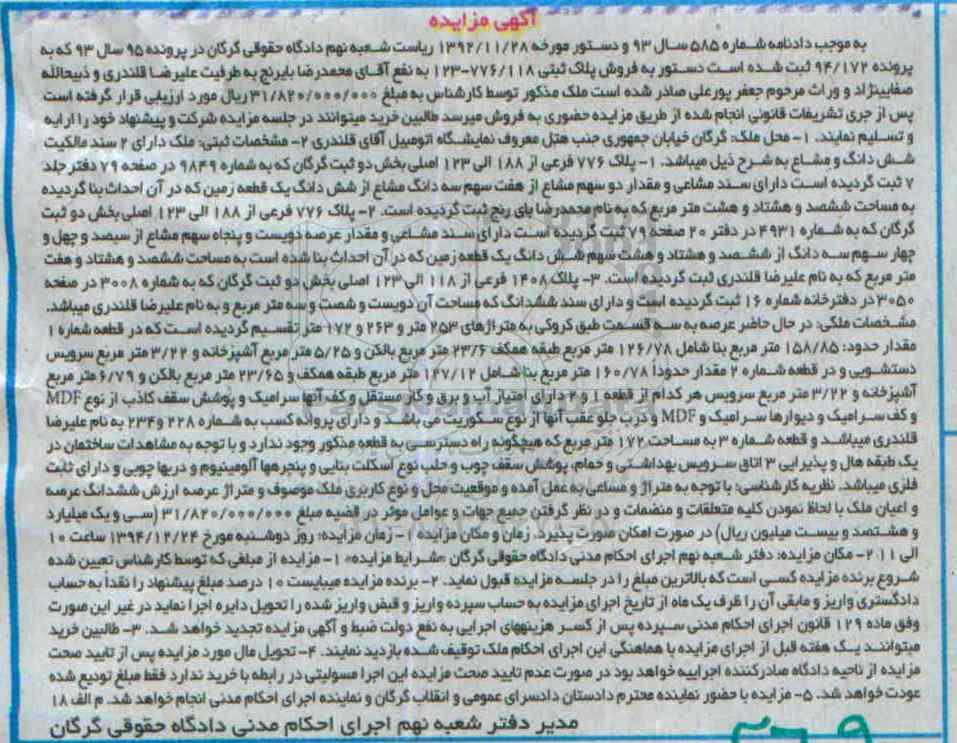 آگهی مزایده
به موجب دادنامه شماره ۵۸۵ سال ۹۳ و دستور مورخه ۱۳۹۲/۱۱/۲۸ ریاست شعبه نهم دادگاه حقوقی گرگان در پرونده ۹۵ سال ۹۳ که به
پرونده ۹۴/۱۷۲ ثبت شده است دستور به فروش پلاک ثبتی ۷۷۶/۱۱۸-۱۲۳ به نفع آقای محمدرضا بایرنج به طرفیت علیرضا قلندری و ذبیحالله
صفایینژاد و وراث مرحوم جعفر پورعلی صادر شده است ملک مذکور توسط کارشناس به مبلغ ۳۱/۸۲۰/۰۰۰/۰۰۰ ریال مورد ارزیابی قرار گرفته است
پس از جری تشریفات قانونی انجام شده از طریق مزایده حضوری به فروش میرسد طالبین خرید میتوانند در جلسه مزایده شرکت و پیشنهاد خود را ارایه
و تسلیم نمایند. ۱- محل ملک: گرگان خیابان جمهوری جنب هتل معروف نمایشگاه اتومبیل آقای قلندری ۲- مشخصات ثبتی: ملک دارای ۲ سند مالکیت
شش دانگ و مشاع به شرح ذیل میباشد. ۱- پلاک ۷۷۶ فرعی از ۱۸۸ الی ۱۲۳ اصلی بخش دو ثبت گرگان که به شماره ۹۸۴۹ در صفحه ۷۹ دفتر جلد
۷ ثبت گردیده است دارای سند مشاعی و مقدار دو سهم مشاع از هفت سهم سه دانگ مشاع از شش دانگ یک قطعه زمین که در آن احداث بنا گردیده
به مساحت ششصد و هشتاد و هشت متر مربع که به نام محمدرضا بای رنج ثبت گردیده است. ۲- پلاک ۷۷۶ فرعی از ۱۸۸ الی ۱۲۳ اصلی بخش دو ثبت
گرگان که به شماره ۴۹۳۱ در دفتر ۲۰ صفحه ۷۹ ثبت گردیده است دارای سند مشاعی و مقدار عرصه دویست و پنجاه سهم مشاع از سیصد و چهل و
چهار سهم سه دانگ از ششصد و هشتاد و هشت سهم شش دانگ یک قطعه زمین که در آن احداث بنا شده است به مساحت ششصد و هشتاد و هفت
متر مربع که به نام علیرضا قلندری ثبت گردیده است. ۳- پلاک ۱۴۰۸ فرعی از ۱۱۸ الی ۱۲۳ اصلی بخش دو ثبت گرگان که به شماره ۳۰۰۸ در صفحه
۳۰۵۰ در دفترخانه شماره ۱۶ ثبت گردیده است و دارای سند ششدانگ که مساحت آن دویست و شصت و سه متر مربع و به نام علیرضا قلندری میباشد.
مشخصات ملکی: در حال حاضر عرصه به سه قسمت طبق کروکی به متراژهای ۲۵۳ متر و ۲۶۳ و ۱۷۲ متر تقسیم گردیده است که در قطعه شماره ۱
مقدار حدود: ۱۵۸/۸۵ متر مربع بنا شامل ۱۲۶/۷۸ متر مربع طبقه همکف ۲۳/۶ متر مربع بالکن و ۵/۲۵ متر مربع آشپزخانه و ۳/۲۲ متر مربع سرویس
دستشویی و در قطعه شماره ۲ مقدار حدودا ۱۶۰/۷۸ متر مربع بنا شامل ۱۴۷/۱۲ متر مربع طبقه همکف و ۲۳/۶۵ متر مربع بالکن و ۶/۷۹ متر مربع
آشپزخانه و ۳/۲۲ متر مربع سرویس هر کدام از قطعه ۱ و ۲ دارای امتیاز آب و برق و گاز مستقل و کف آنها سرامیک و پوشش سقف کاذب از نوع MDF
و کف سرامیک و دیوارها سرامیک و MDF و درب جلو عقب آنها از نوع سکوریت می باشد و دارای پروانه کسب به شماره ۲۲۸ و ۲۳۴ به نام علیرضا
قلندری میباشد و قطعه شماره ۳ به مساحت ۱۷۲ متر مربع که هیچگونه راه دسترسی به قطعه مذکور وجود ندارد و با توجه به مشاهدات ساختمان در
یک طبقه هال و پذیرایی ۳ اتاق سرویس بهداشتی و حمام، پوشش سقف چوب و حلب نوع اسکلت بنایی و پنجرهها آلومینیوم و دربها چوبی و دارای ثابت
فلزی میباشد. نظریه کارشناسی: با توجه به متراژ و مساعی به عمل آمده و موقعیت محل و نوع کاربری ملک موصوف و متراژ عرصه ارزش ششدانگ عرصه
و اعیان ملک با لحاظ نمودن کلیه متعلقات و منضمات و در نظر گرفتن جمیع جهات و عوامل موثر در قضیه مبلغ ۳۱/۸۲۰/۰۰۰/۰۰۰ (سی و یک میلیارد
و هشتصد و بیست میلیون ریال) در صورت امکان صورت پذیرد. زمان و مکان مزایده ۱- زمان مزایده: روز دوشنبه مورخ ۱۳۹۴/۱۲/۲۴ ساعت ۱۰
الی ۱۱ ۲- مکان مزایده: دفتر شعبه نهم اجرای احکام مدنی دادگاه حقوقی گرگان «شرایط مزایده» ۱- مزایده از مبلغی که توسط کارشناس تعیین شده
شروع برنده مزایده کسی است که بالاترین مبلغ را در جلسه مزایده قبول نماید. ۲- برنده مزایده میبایست ۱۰ درصد مبلغ پیشنهاد را نقدا به حساب
دادگستری واریز و مابقی آن را ظرف یک ماه از تاریخ اجرای مزایده به حساب سپرده واریز و قبض واریز شده را تحویل دایره اجرا نماید در غیر این صورت
وفق ماده ۱۲۹ قانون اجرای احکام مدنی سپرده پس از کسر هزینههای اجرایی به نفع دولت ضبط و آگهی مزایده تجدید خواهد شد. ۳- طالبین خرید
میتوانند یک هفته قبل از اجرای مزایده با هماهنگی این اجرای احکام ملک توقیف شده بازدید نمایند. ۴- تحویل مال مورد مزایده پس از تایید صحت
مزایده از ناحیه دادگاه صادرکننده اجراییه خواهد بود در صورت عدم تایید صحت مزایده این اجرا مسولیتی در رابطه با خرید ندارد فقط مبلغ تودیع شده
عودت خواهد شد. ۵- مزایده با حضور نماینده محترم دادستان دادسرای عمومی و انقلاب گرگان و نماینده اجرای احکام مدنی انجام خواهد شد. م الف ۱۸
مدیر دفتر شعبه نهم اجرای احکام مدنی دادگاه حقوقی گرگان